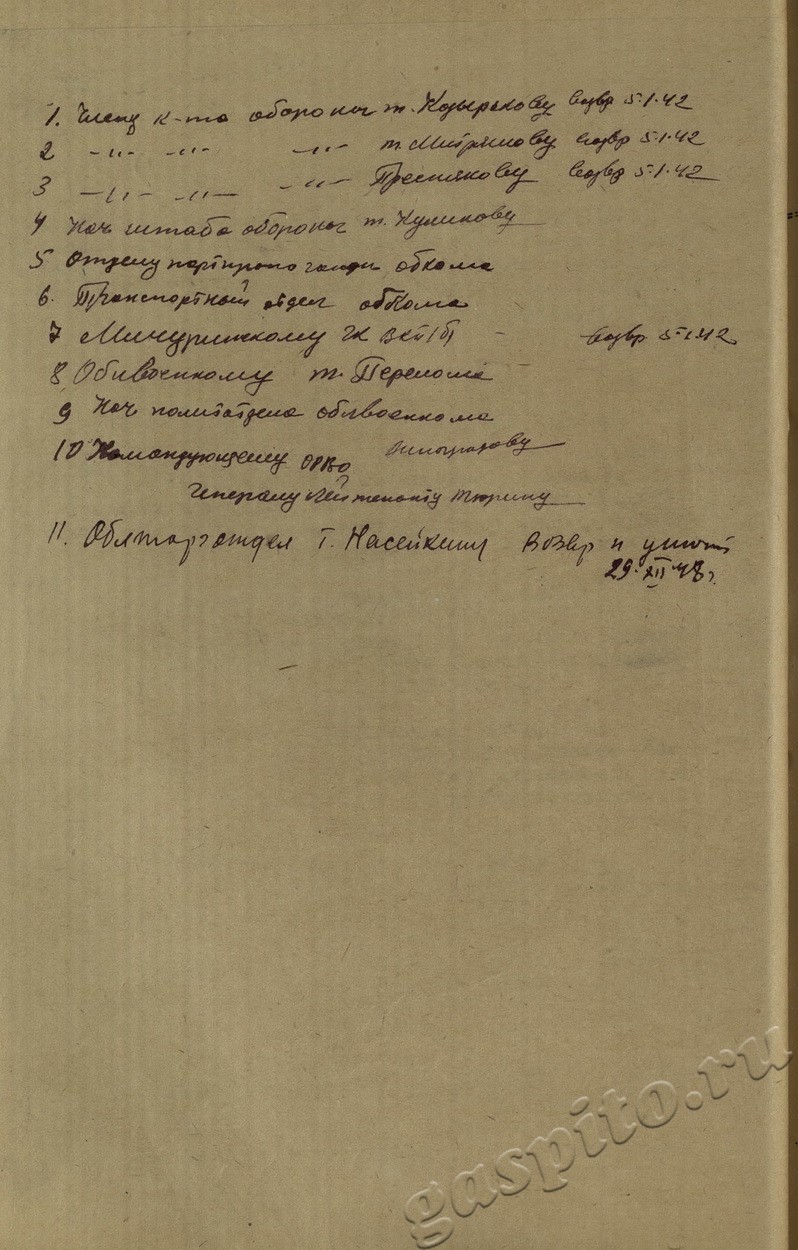 1. Члену к-та обороны т. Козырькову возвр 5.1.42
2 -"- -"- -"- т. Митряшову возвр 5.1.42
3 -"- -"- -"- Преснякову возвр 5.1.42
4 Нач штаба обороны т. Куликову
5 Отделу партпропоганды обкома
6. Транспортный отдел обкома
7 Мичуринскому ГК ВКП/б/ - возвр. 5.1.42
8 Облвоенкому т. Перелома
9 Нач политотдела облвоенкома
10 Командующему ОРВО
Генералу Лейтенанту Тюрину
11. Облторготдел т. Насейкину Возвр и
29.XII 48 г.
gaspito.ru